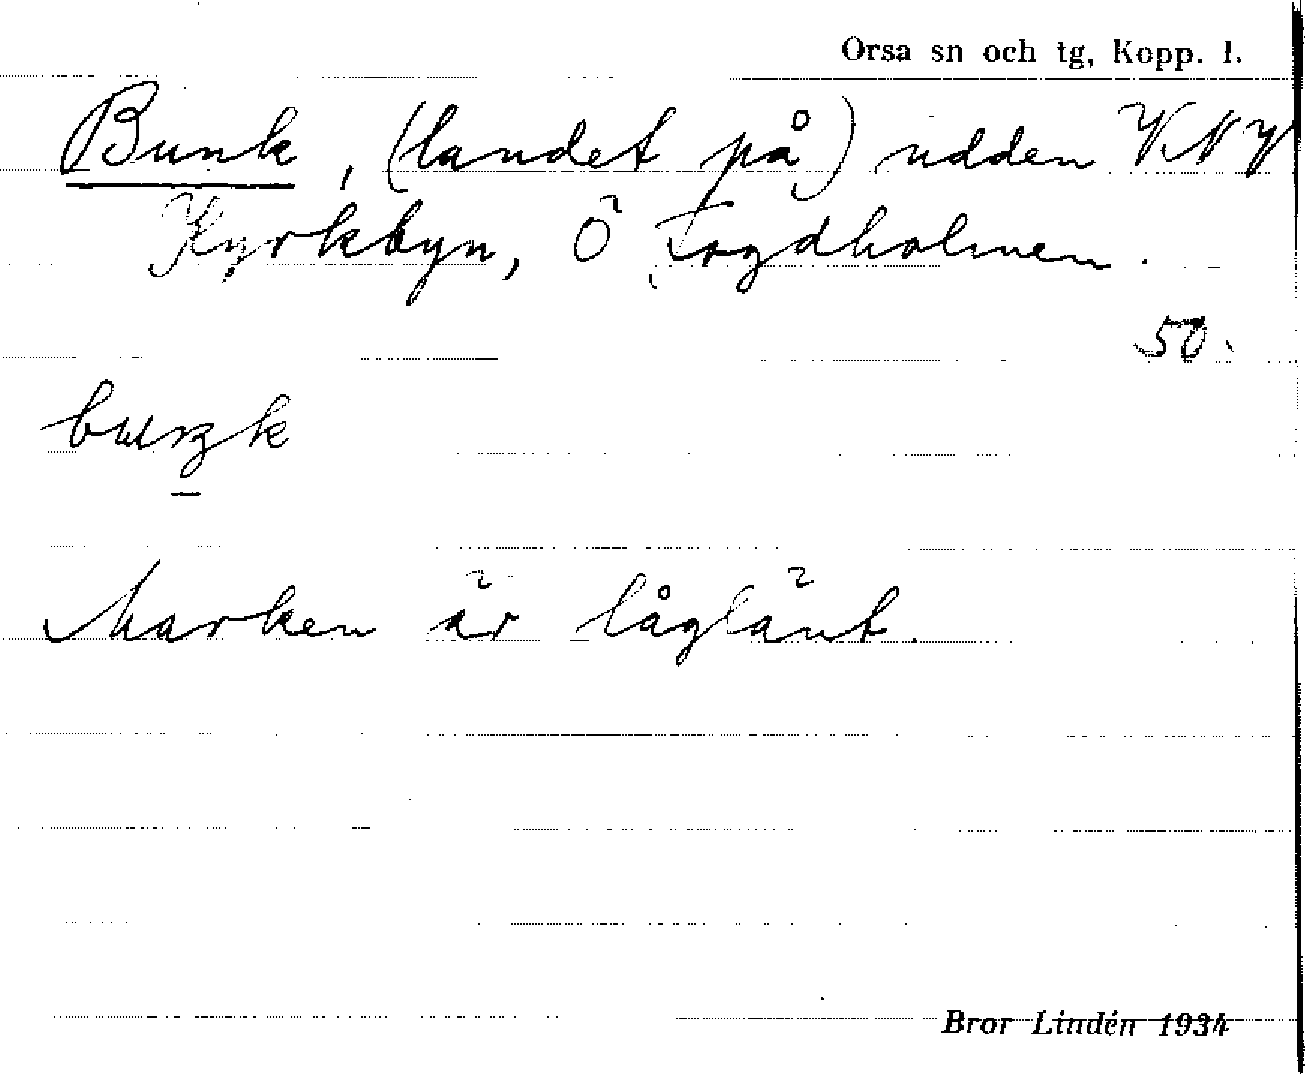 Orsa sn och tg, Kopp. l.
Bunk, (landet på) udden VNV
Kyrkbyn, Ö Fogdholmen.
50.
Marken är låglänt.
Bror Lindén 1934